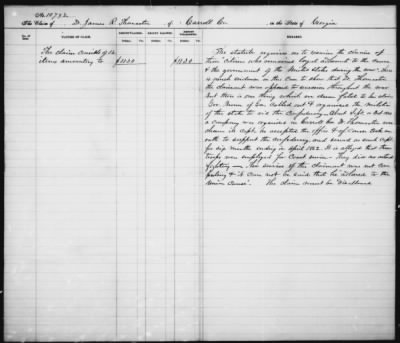 No. 18,792.
The Claim of Dr. James R. Thomaston of Carroll Co. in the State of Georgia
NATURE OF CLAIM.
AMOUNT CLAIMED.
AMOUNT ALLOWED.
AMOUNT DISALLOWED.
REMARKS.
The claim consists of 12
items amounting to $1130 $1130
The statute requires us to examine the claims of
those citizens who remained loyal adherents to the cause
& the government of the United States during the war. There
is much evidence in this Case to show that Dr. Thomaston
the claimant was opposed to secession throughout the war.
But there is one thing which we deem fatal to his claim
Gov. Brown of Ga. called out & organized the militia
of the state to aid the Confederacy. About Sept. or Oct. 1861
a company was organized in Carroll Co. Dr. Thomaston was
chosen its Capt. he accepted the office & of course took an
oath to support the confederacy, and served as such Capt.
for six months ending in April 1862. It is alleged that these
troops were employed for Coast service. They did no actual
fighting. The service of the claimant was not
compulsory & it can not be said that he adhered to the
Union Cause. The claim must be disallowed